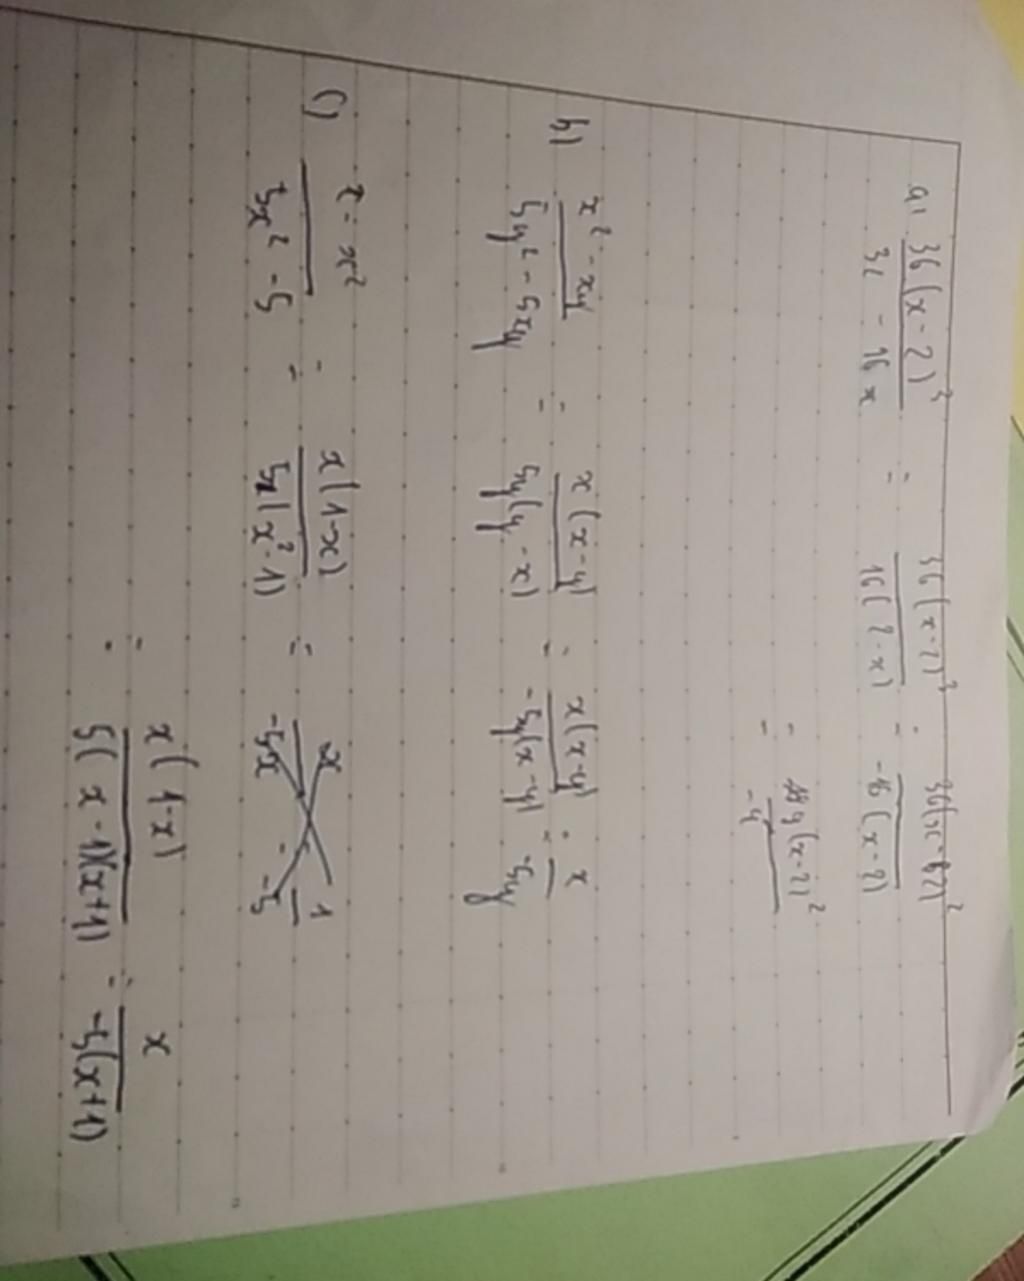 a) 36(x-2)³ / 32 - 16x = 36(x-2)³ / 16(2-x) = 36(x-2)² / -16(x-2)
= 9(x-2)² / -4
b) x² - xy / 5y² - 5xy = x(x-y) / 5y(y-x) = x(x-y) / -5y(x-y) = x / -5y
c) x - x² / 5x² - 5 = x(1-x) / 5(x²-1) = x / -5x = 1 / -5
= x(1-x) / 5(x-1)(x+1) = x / -5(x+1)